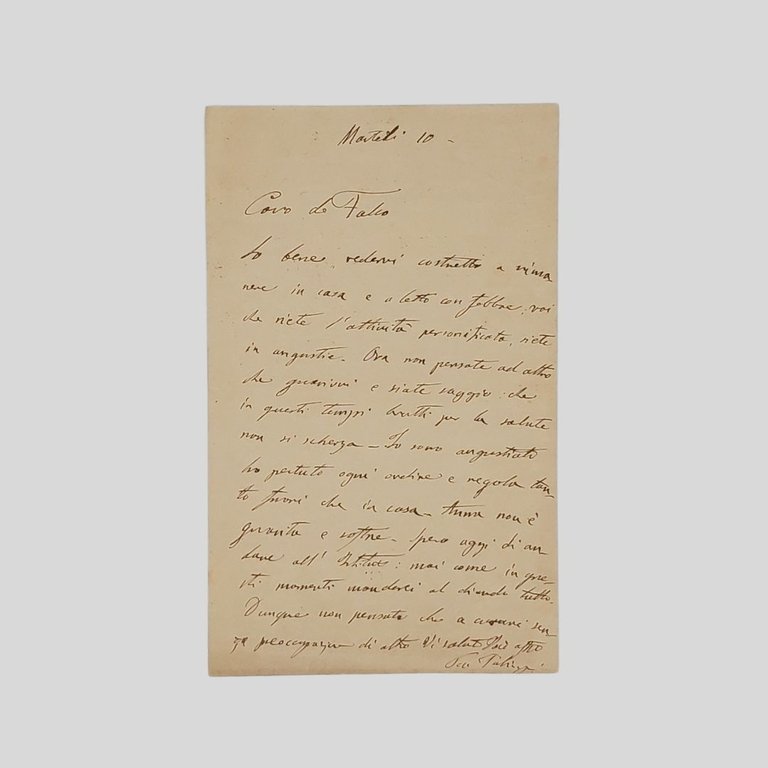 Martedì 10 -
Caro de Falco
So bene, vedervi costretto a rima
nere in casa e a letto con febbre, voi
che siete l'attività personificata, siete
in angustie. Ora non pensate ad altro
che guarirvi e siate saggio: che
in questi tempi brutti per la salute
non si scherza _ Io sono angustiato
ho perduto ogni ordine e regola tan-
to fuori che in casa _ Anna non è
guarita e soffre _ spero oggi di an
dare all' Istituto: mai come in que-
sti momenti manderei al diavolo tutto.
Dunque non pensate che a curarvi sen
za di altro Vi saluto affo